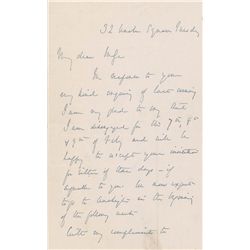 32 Square Tuesday
My dear
In response to your
very kind enquiry of this morning
I am very glad to say that
I am disengaged for the 7th, 8th
& 9th of July and will be
happy to accept your invitation
for either of those days – if
agreeable to you. We now expect
to go to in the
of the following week
With my compliments to